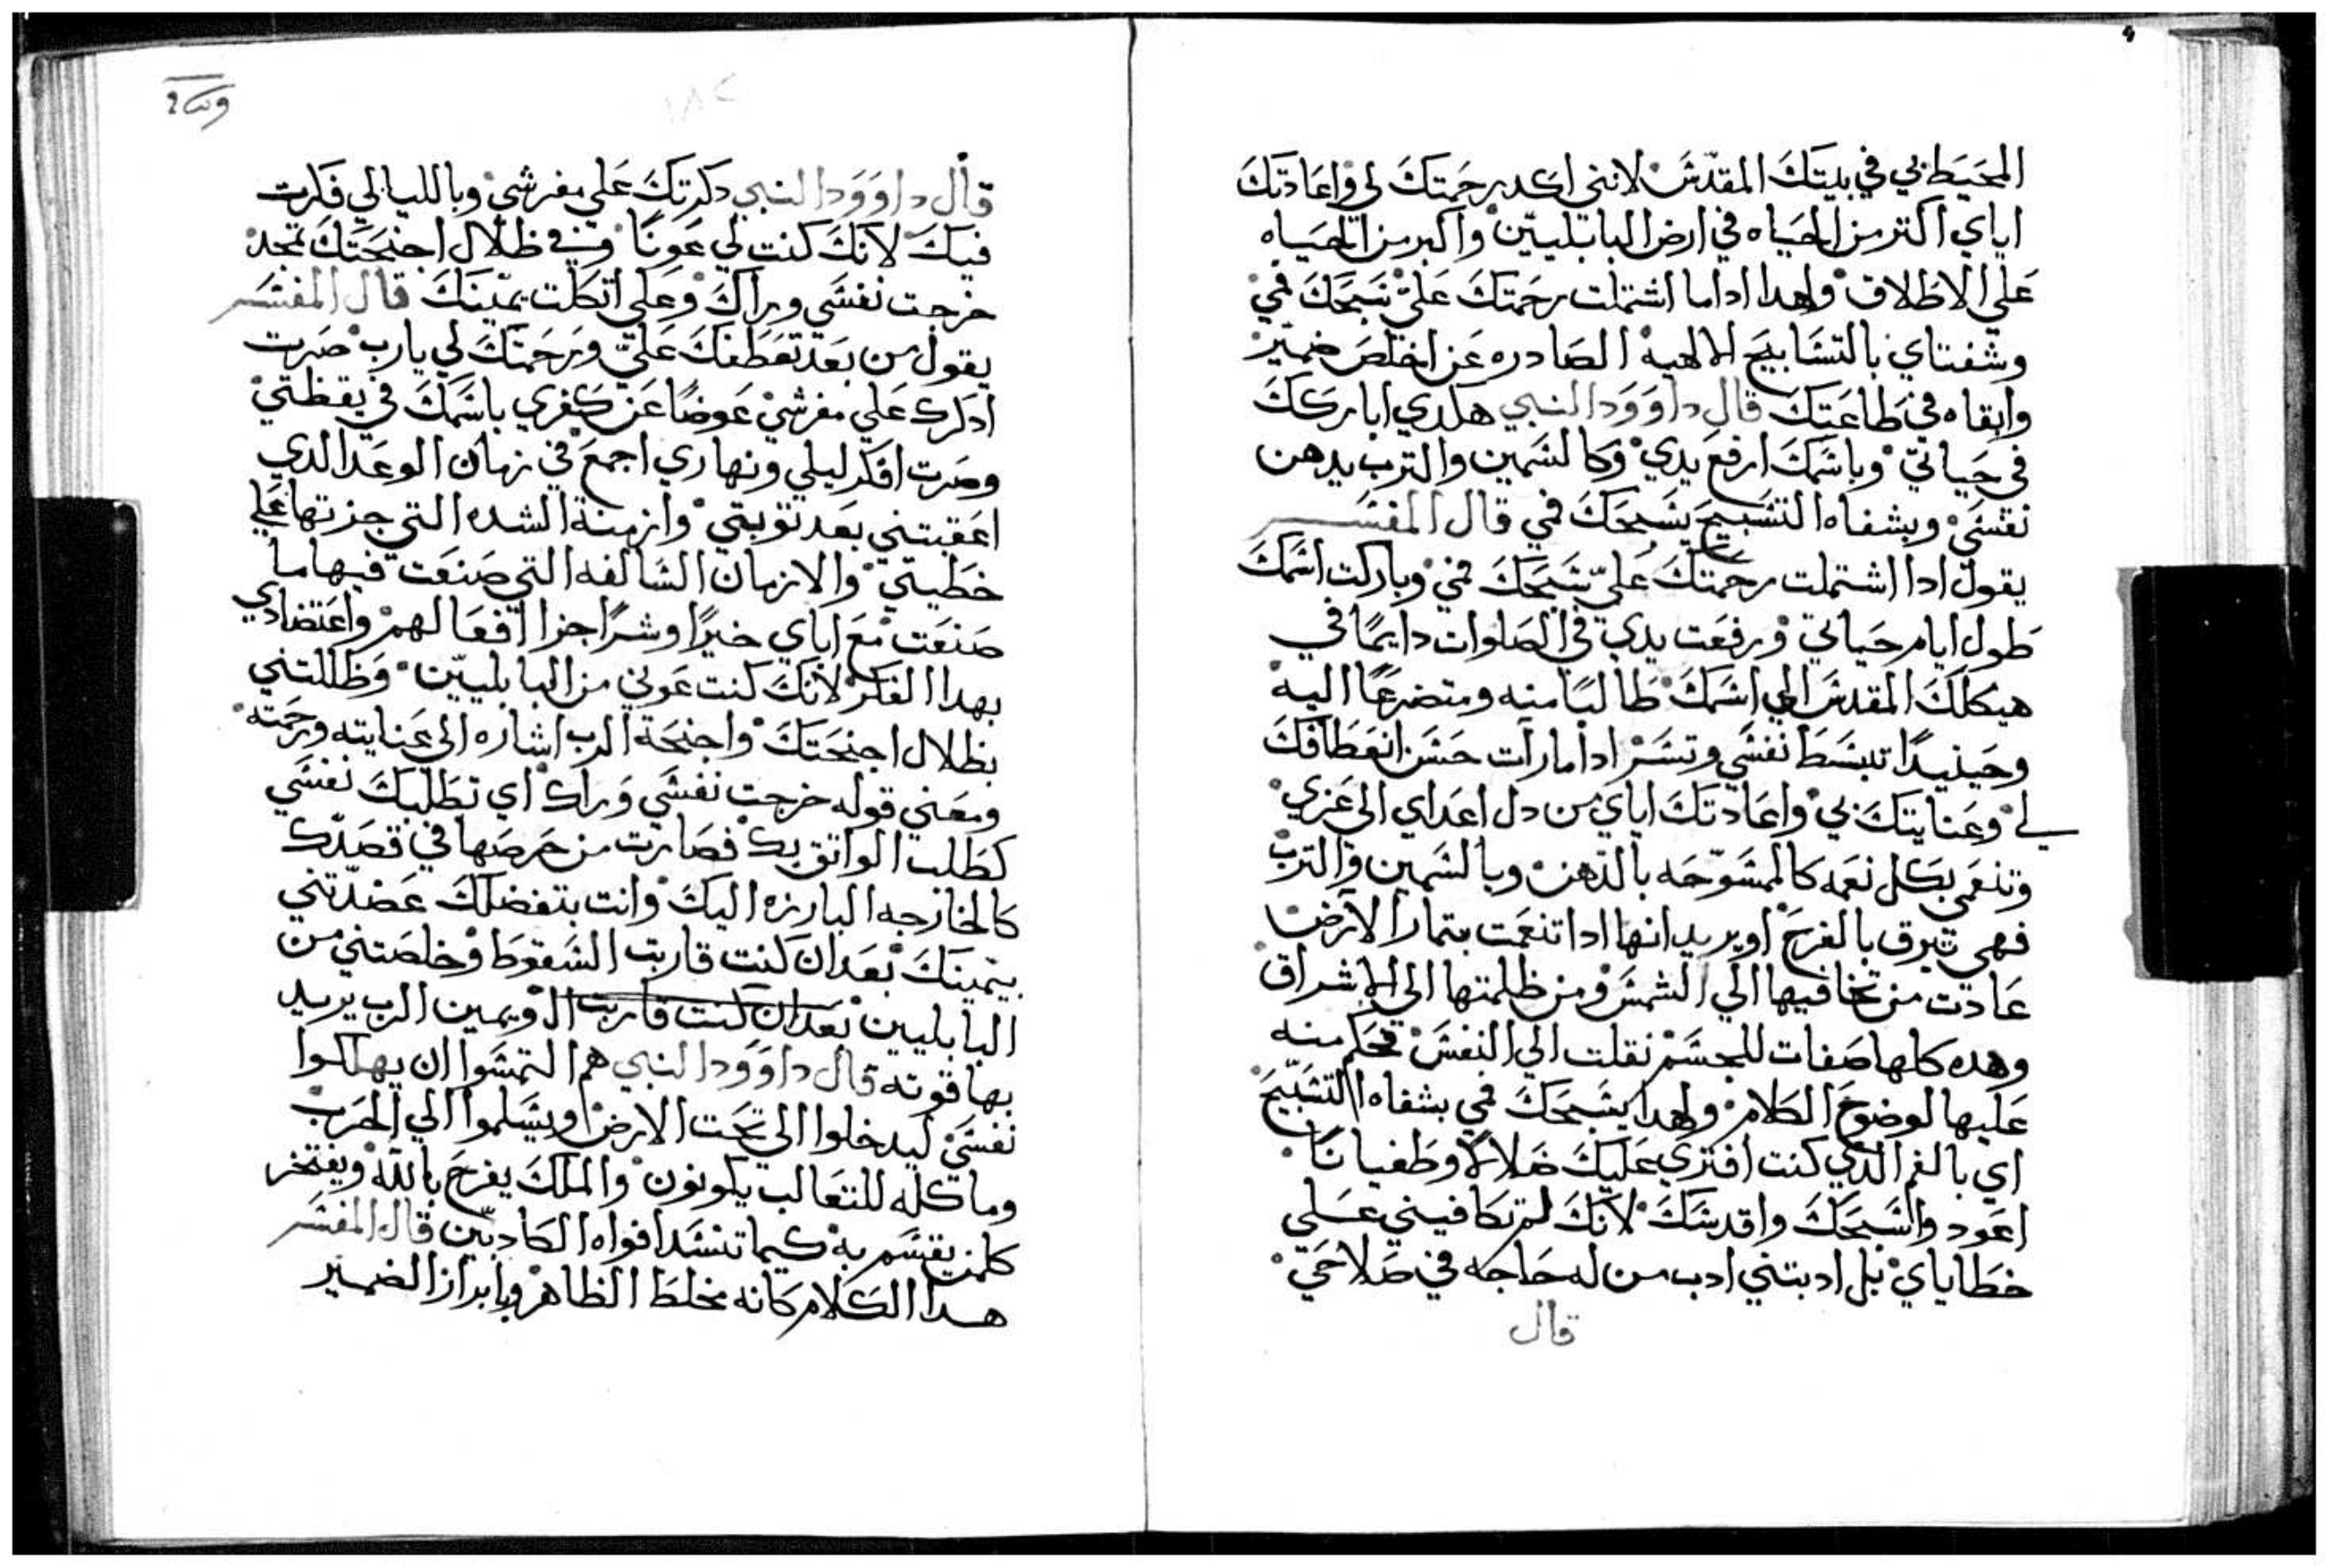 المحيط بي في بيتك المقدس لانني اكد برحمتك لي واعادتك
اياي اكتر من الحياه في ارض البابليين واكبر من الحياه
علي الاطلاق ولهدا اداما اشتملت رحمتك علي تسبحك في
وشفتاي بالتسابيح الالهيه الصادره عن اخلص ضمير
وابقاه في طاعتك قال داوود النبي هكدي اباركك
في حياتي وباسمك ارفع يدي وكالسمين والترب يدهن
نفسي وبشفاه التسبيح يسبحك في قال المفسر
يقول ادا اشتملت رحمتك علي سبحك في وباركت اسمك
طول ايام حياتي ورفعت يدي في الصلوات دايما في
هيكلك المقدس الي اسمك طالبا منه ومتضرعا اليه
وحينيدا تبسط نفسي وتسر اداما رات حسن انعطافك
لي وعنايتك بي واعادتك اياي من دل اعداي الي عزي
وتنعمي بكل نعمه كالمسوحه بالدهن وبالسمين والترب
فهي تبرق بالفرح او يريد انها ادا تنعمت بتمار الارض
عادت من تخافيها الي الشمس ومن ظلمتها الي الاشراق
وهده كلها صفات للجسم نقلت الي النفس فحكم منه
عليها لوضوح الكلام ولهدا يسبحك في بشفاه التسبيح
اي بالفم الدي كنت افتري عليك ضلالا وطغيانا
اعود واسبحك واقدسك لانك لم تكافيني علي
خطاياي بل ادبتني ادب من له حاجه في صلاحي
قال
قال داوود النبي دكرتك علي مفرشي وبالليالي فكرت
فيك لانك كنت لي عونا وفي ظلال اجنحتك تمجد
خرجت نفسي وراك وعلي اتكلت يمينك قال المفسر
يقول من بعد تعطفك علي ورحمتك لي يارب صرت
ادكرك علي مفرشي عوضا عن كفري باسمك في يقظتي
وصرت افكر ليلي ونهاري اجمع في زمان الوعد الدي
اعقبتني بعد توبتي وازمنة الشده التي جزتها علي
خطيتي والازمان السالفه التي صنعت فيها ما
صنعت مع اباي خيرا وشرا جزا افعالهم واعتضادي
بهدا الفكر لانك كنت عوني من البابليين وظللتني
بظلال اجنحتك واجنحة الرب اشاره الي عنايته ورحمته
ومعني قوله خرجت نفسي وراك اي تطلبك نفسي
كطلب الواتق بك فصارت من حرصها في قصدك
كالخارجه البارزه اليك وانت بتفضلك عضدتني
بيمينك بعد ان كنت قاربت السقوط وخلصتني من
البابليين بعد ان كنت قاربت ال ويمين الرب يريد
بها قوته قال داوود النبي هم التمسوا ان يهلكوا
نفسي ليدخلوا الي تحت الارض ويسلموا الي الحرب
وماكله للتعالب يكونون والملك يفرح بالله ويفتخر
كلمن يقسم به كيما تنسد افواه الكادبين قال المفسر
هدا الكلام كانه مخلط الظاهر وبابراز الضمير